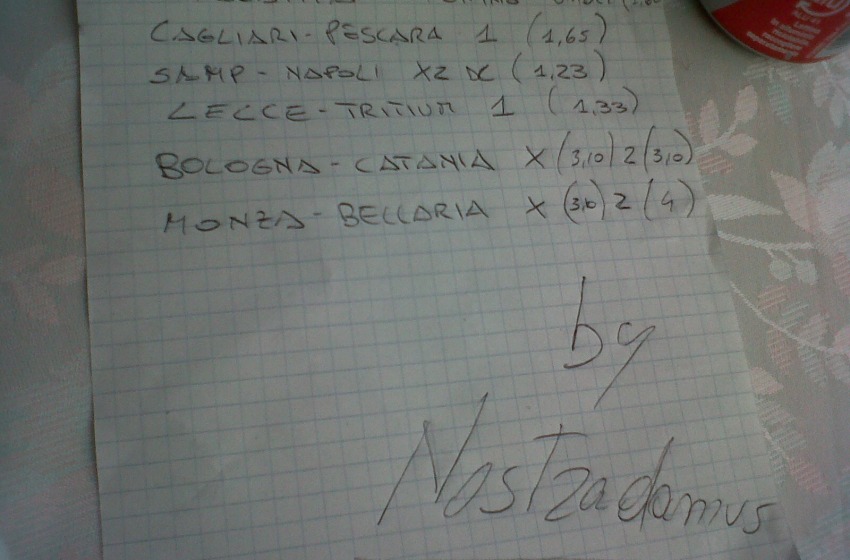 CAGLIARI-PESCARA 1 (1,65)
SAMP-NAPOLI X2 DC (1,23)
LECCE-TRITIUM 1 (1,33)
BOLOGNA-CATANIA X (3,10) 2 (3,10)
MONZA-BELLARIA X (3,6) 2 (4)
by
Nostradamus